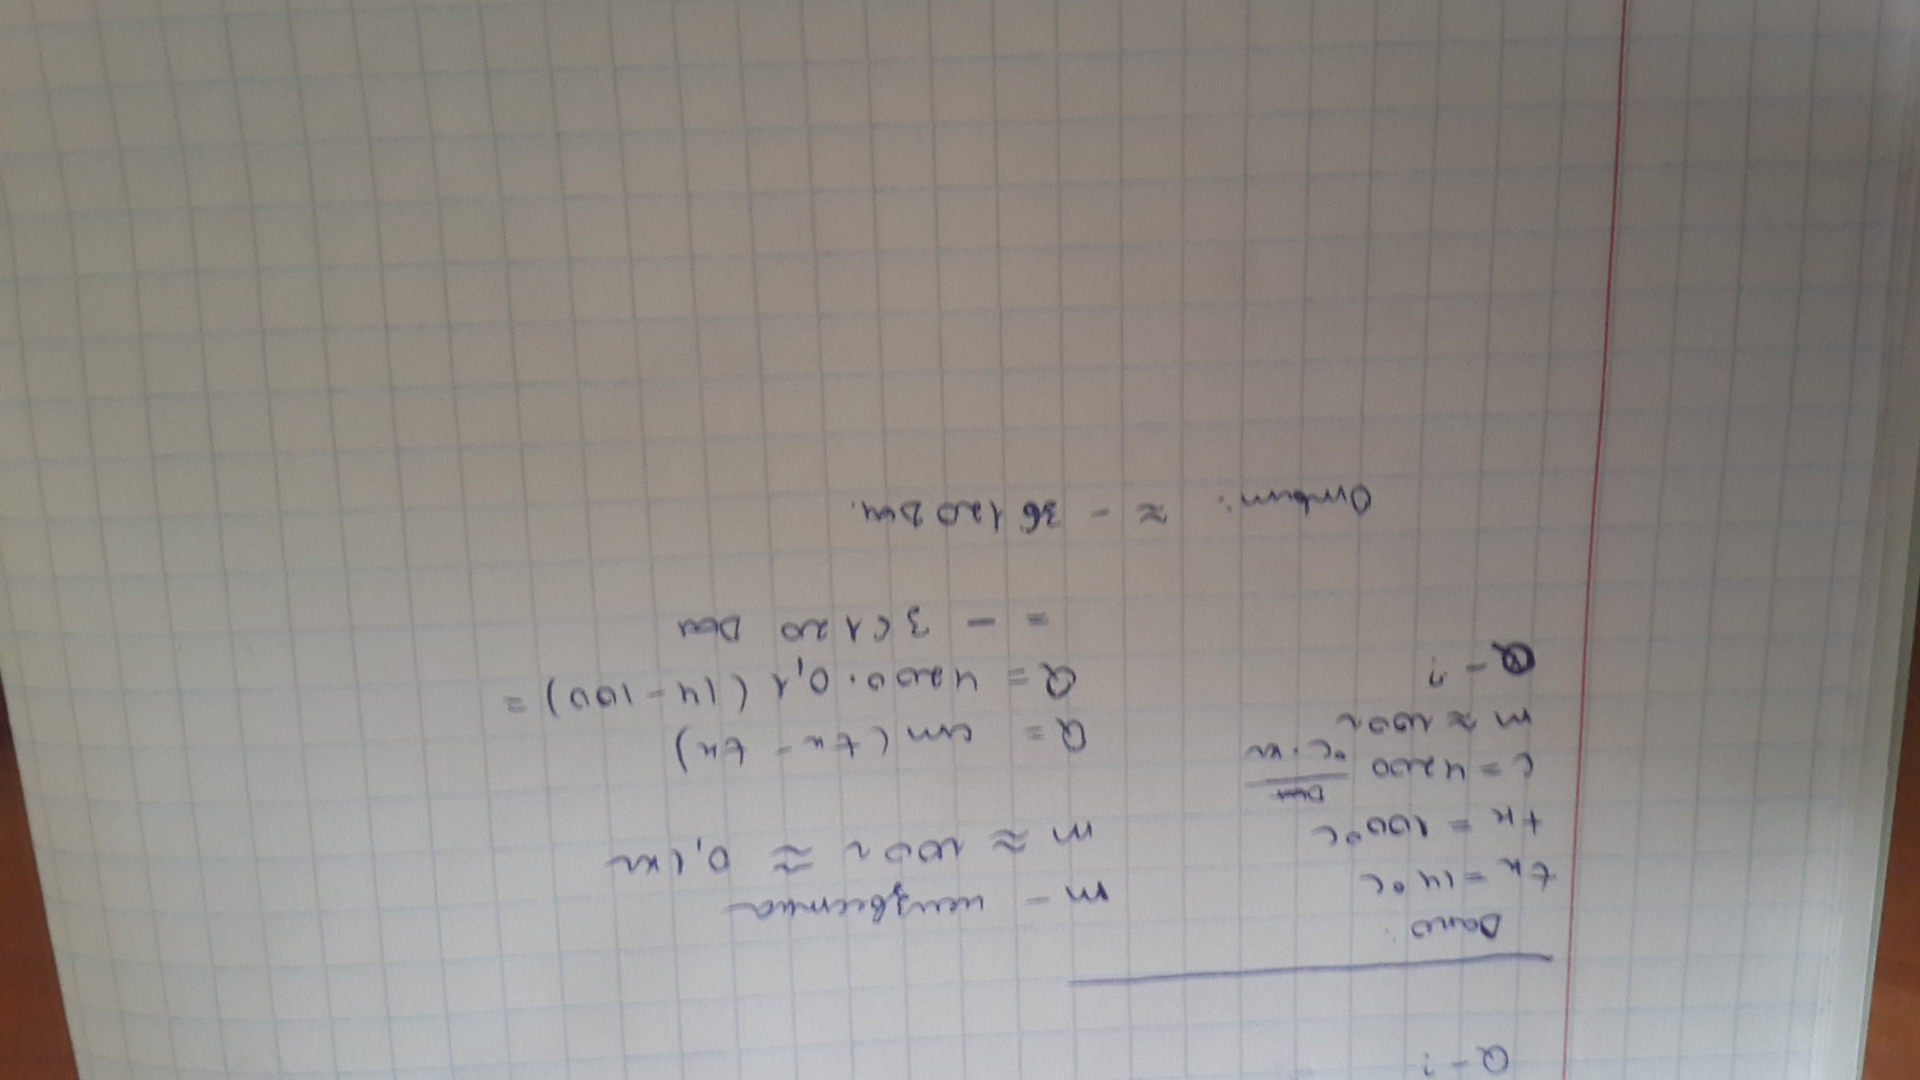 Q - ?
Дано:
tк = 14 °C
tн = 100 °C
c = 4200 Дж/°C·кг
m ≈ 100 г
Q - ?
m - неизвестна
m ≈ 100 г ≈ 0,1 кг
Q = cm (tк - tн)
Q = 4200 · 0,1 (14 - 100) =
= - 36120 Дж
Ответ: ≈ - 36120 Дж.